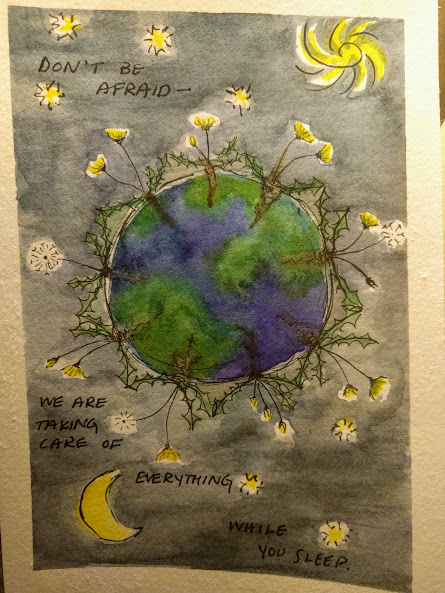 DON'T BE
AFRAID—
WE ARE
TAKING
CARE OF
EVERYTHING
WHILE
YOU SLEEP.